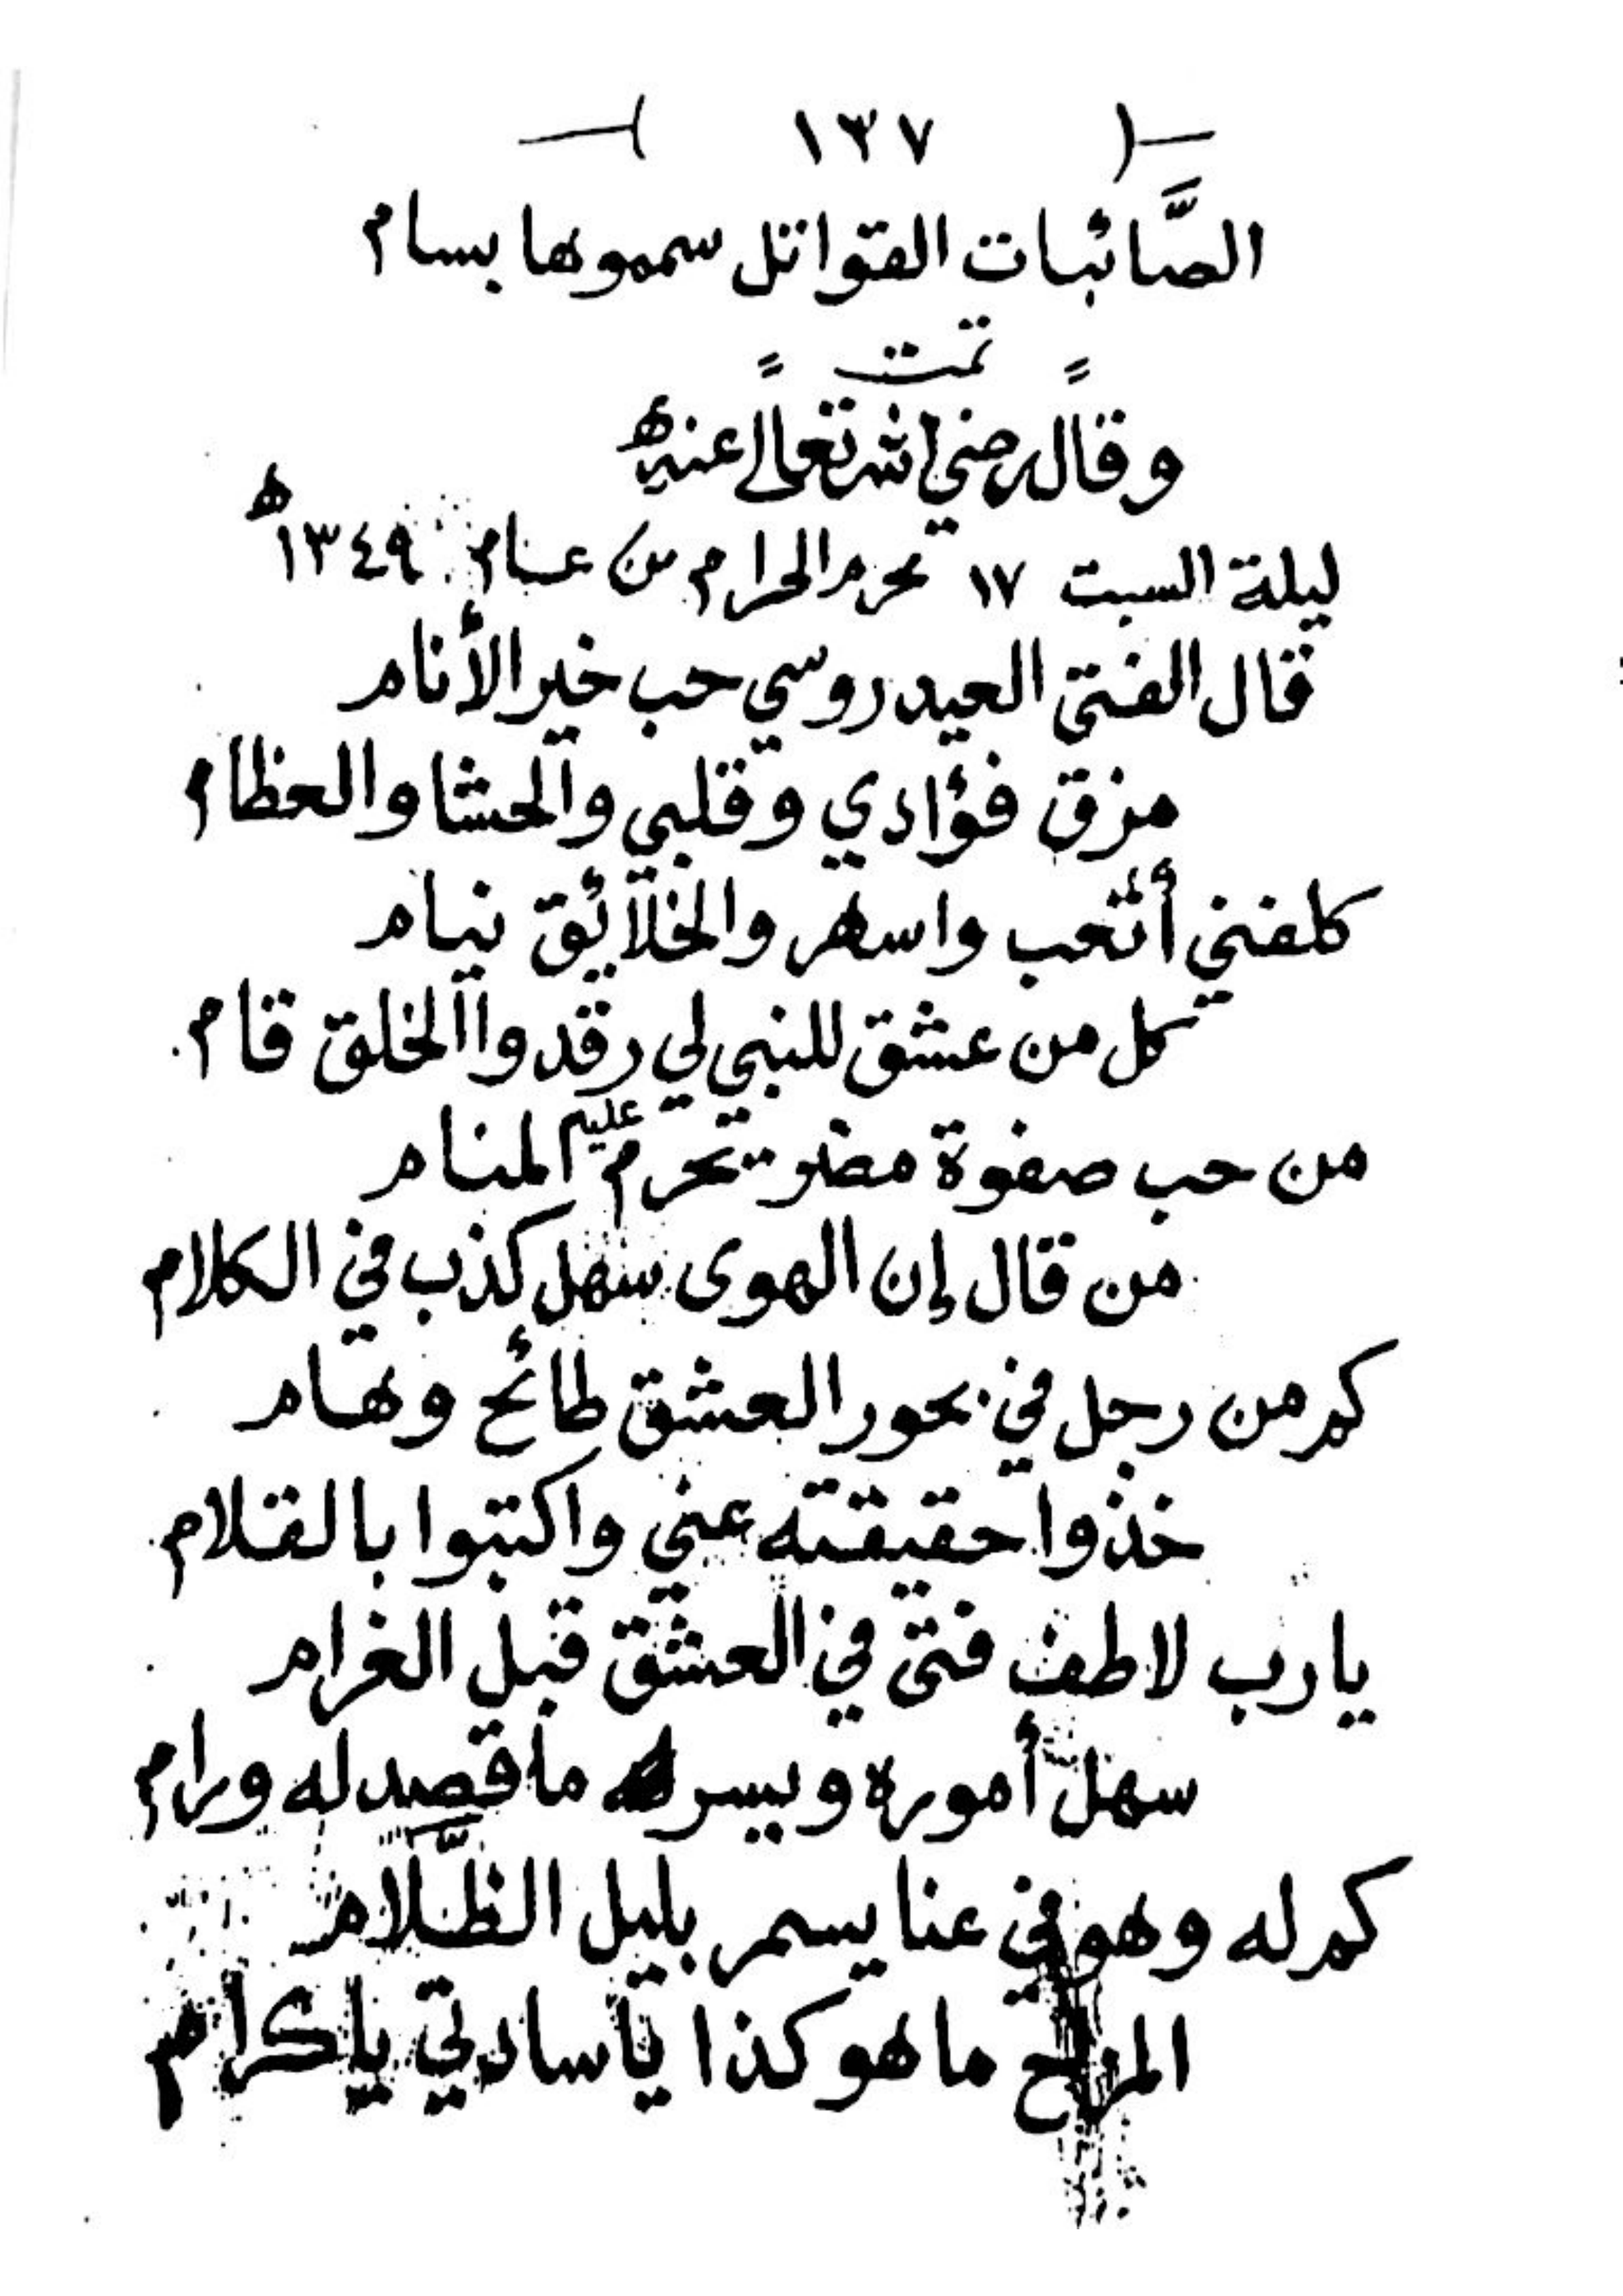 -( ١٣٧ )-
الصَّائبات القواتل سمموها بسام
تمت
وقال رضي الله تعالى عنه
ليلة السبت ١٧ محرم الحرام من عام ١٣٤٩ھ
قال الفتى العيدروسي حب خير الأنام
مزق فؤادي وقلبي والحشا والعظام
كلفني أتعب واسهر والخلائق نيام
كل من عشق للنبي لي رقدوا الخلق قام
من حب صفوة مضر تحرم عليه المنام
من قال إن الهوى سهل كذب في الكلام
كم من رجل في بحور العشق طائح وهام
خذوا حقيقته عني واكتبوا بالقلام
يارب لاطف فتى في العشق قبل الغرام
سهل أموره ويسر ما قصد له ورام
كم له وهو في عنا يسمر بليل الظَّلام
ما هو كذا يا سادتي يا كرام